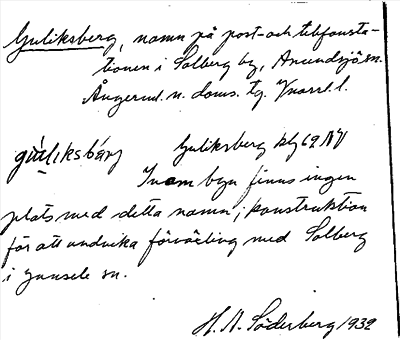 Guliksberg, namn på post- och telefonsta-
tionen i Solberg by, Anundsjö sn.
Ångerml. n. doms. tg. Vnorrl. l.
Guliksberg blg 62 NV
Inom byn finns ingen
plats med detta namn; konstruktion
för att undvika förväxling med Solberg
i Junsele sn.
H. N. Söderberg 1932